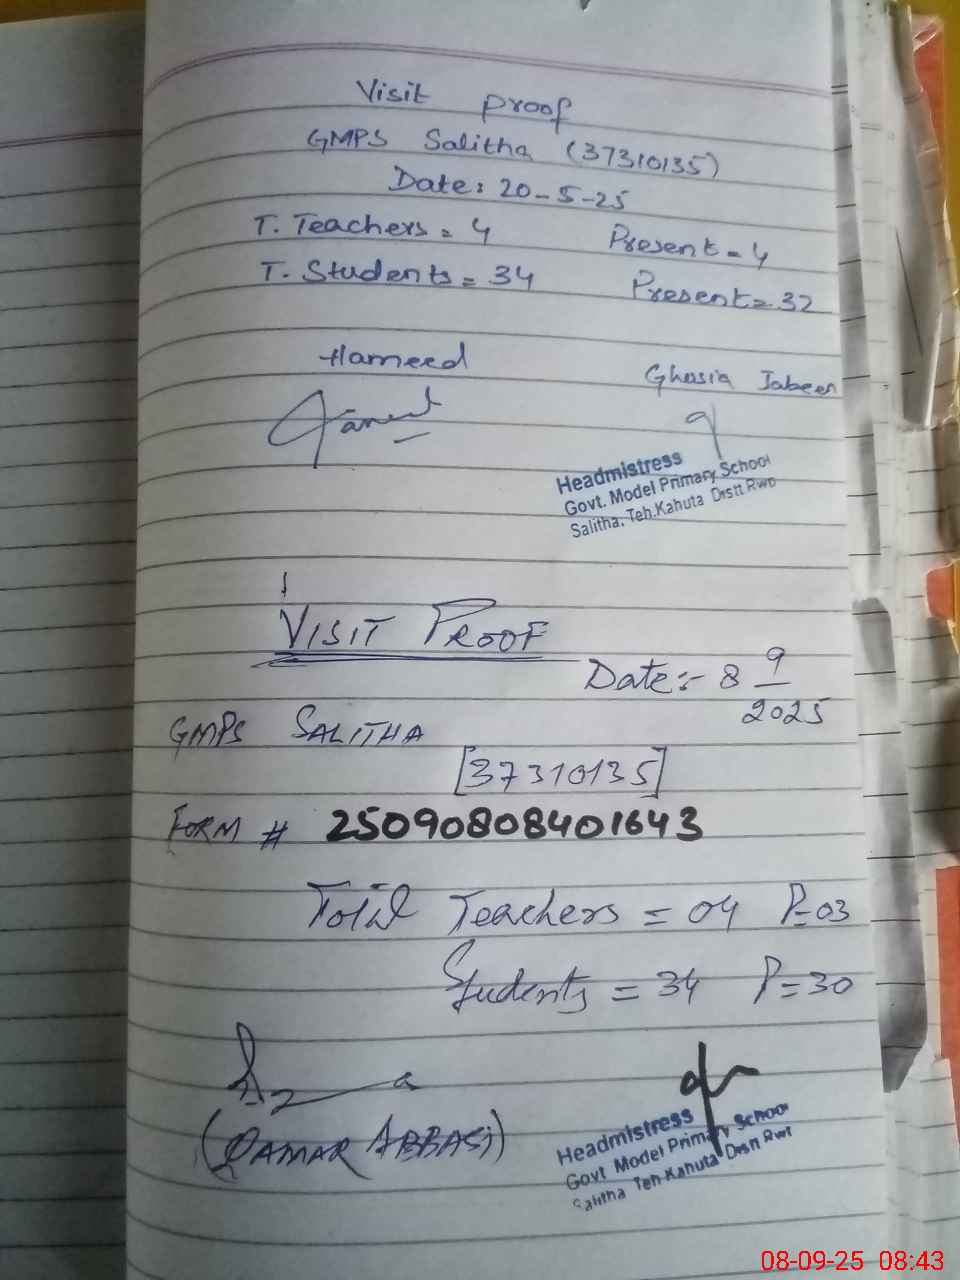 Visit proof
GMPS Salitha (37310135)
Date: 20-5-25
T. Teachers = 4 Present = 4
T. Students = 34 Present = 32
Hameed
Ghosia Jabeen
Headmistress
Govt. Model Primary School
Salitha. Teh.Kahuta Distt Rwp
VISIT PROOF
Date:- 8 9/2025
GMPS SALITHA
[37310135]
FORM # 25090808401643
Total Teachers = 04 P=03
Students = 34 P=30
(QAMAR ABBASI)
Headmistress
Govt Model Primary School
Salitha Teh Kahuta Distt Rwp
08-09-25 08:43